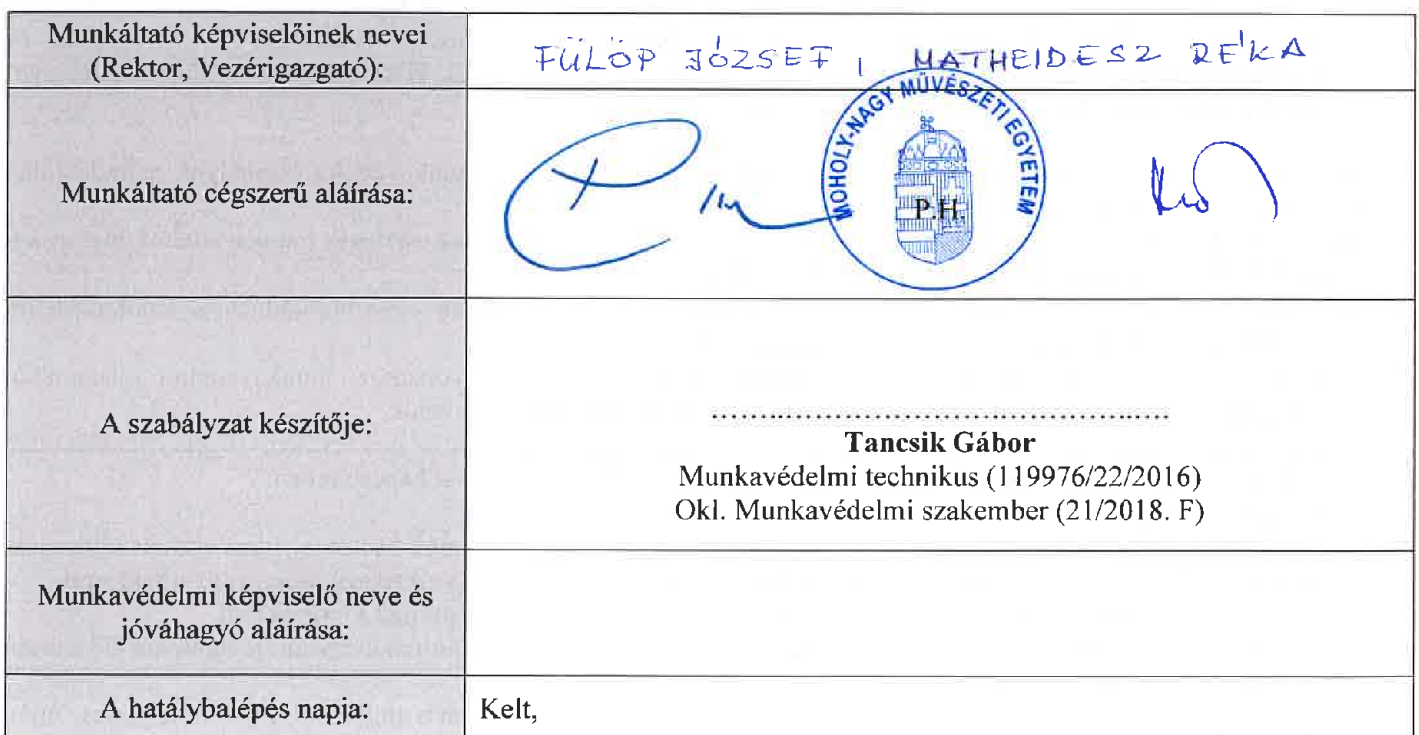 Munkáltató képviselőinek nevei
(Rektor, Vezérigazgató):
FÜLÖP JÓZSEF, MATHEIDESZ RÉKA
Munkáltató cégszerű aláírása:
MOHOLY-NAGY MŰVÉSZETI EGYETEM
P.H.
A szabályzat készítője:
Tancsik Gábor
Munkavédelmi technikus (119976/22/2016)
Okl. Munkavédelmi szakember (21/2018. F)
Munkavédelmi képviselő neve és
jóváhagyó aláírása:
A hatálybalépés napja:
Kelt,